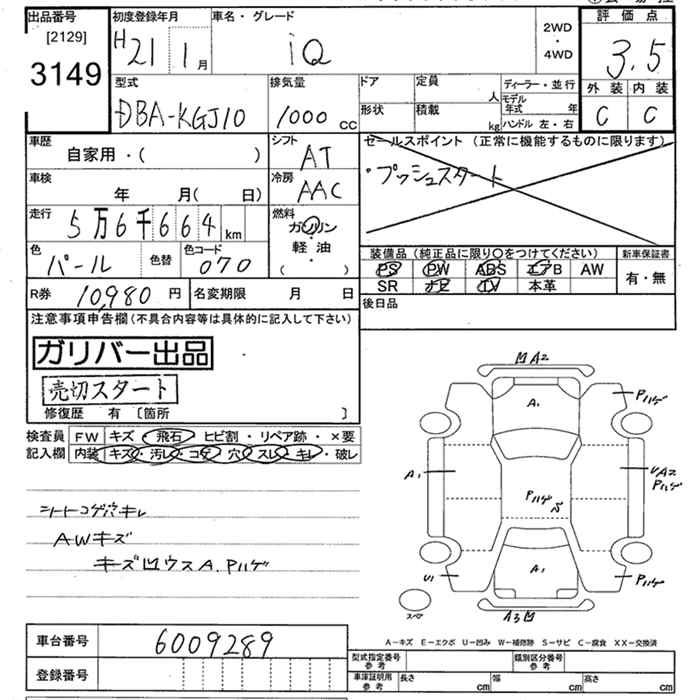 出品番号 [2129] 3149
初度登録年月 H21 1月
車名・グレード iQ
2WD・4WD
評価点 3.5
外装 C 内装 C
型式 DBA-KGJ10
排気量 1000 cc
ドア 形状
定員 人 積載 kg
ディーラー・並行
モデル年式 年
ハンドル 左・右
車歴 自家用・( )
シフト AT
車検 年 月( 日)
冷房 AAC
セールスポイント (正常に機能するものに限ります)
・プッシュスタート
走行 5万6千664km
燃料 ガソリン 軽油 ( ・ )
色 パール 色替
色コード 070
装備品 (純正品に限り○をつけてください)
PS PW ABS エアB AW
SR ナビ TV 本革
新車保証書 有・無
R券 10,980円
名変期限 月 日
後日品
注意事項申告欄 (不具合内容等は具体的に記入して下さい)
ガリバー出品
売切スタート
修復歴 有 〔箇所 〕
検査員記入欄
FW キズ・飛石・ヒビ割・リペア跡・×要
内装 キズ・汚レ・コゲ・穴・スレ・キレ・破レ
シートコゲ穴キレ
AWキズ
キズ凹ウスA. Pハゲ
凹A2
A1
Pハゲ
A1
UA2
Pハゲ
Pハゲ
S
U1
A1
Pハゲ
スペア
A3凹
A-キズ E-エクボ U-凹み W-補修跡 S-サビ C-腐食 XX-交換済
車台番号 6009289
登録番号
型式指定番号 参考
類別区分番号 参考
車庫証明用 参考 長さ cm 幅 cm 高さ cm